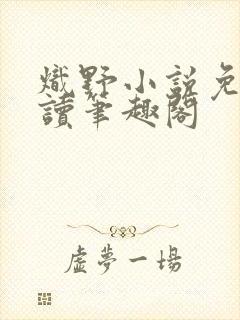 熾野小説免
讀筆趣閣
虛夢一場